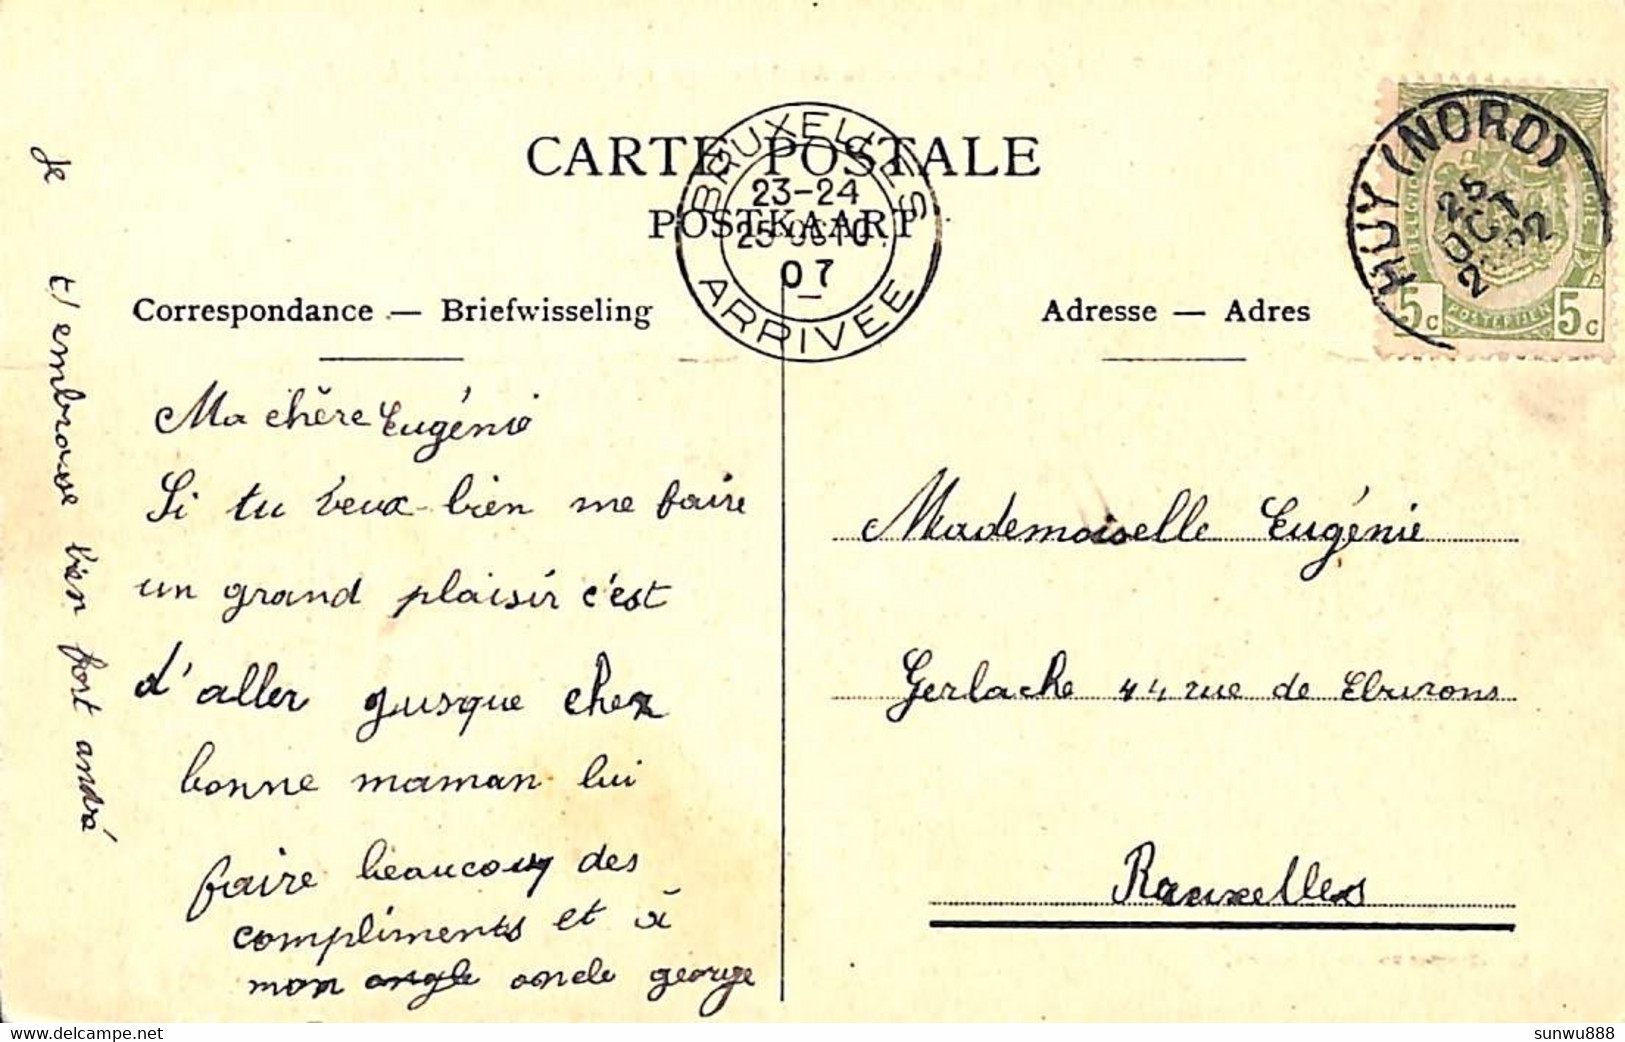 CARTE POSTALE
POSTKAART
BRUXELLES
23-24
25 OCTO
07
ARRIVEE
HUY (NORD)
25
OCT
BELGIQUE
BELGIË
5c POSTERIJEN 5c
Correspondance — Briefwisseling
Adresse — Adres
Ma chère Eugénie
Si tu veux bien me faire
un grand plaisir c'est
d'aller jusque chez
bonne maman lui
faire beaucoup des
compliments et à
mon oncle george
Je t'embrasse bien fort andré
Mademoiselle Eugénie
Gerlache 44 rue de
Bruxelles
sunwu888